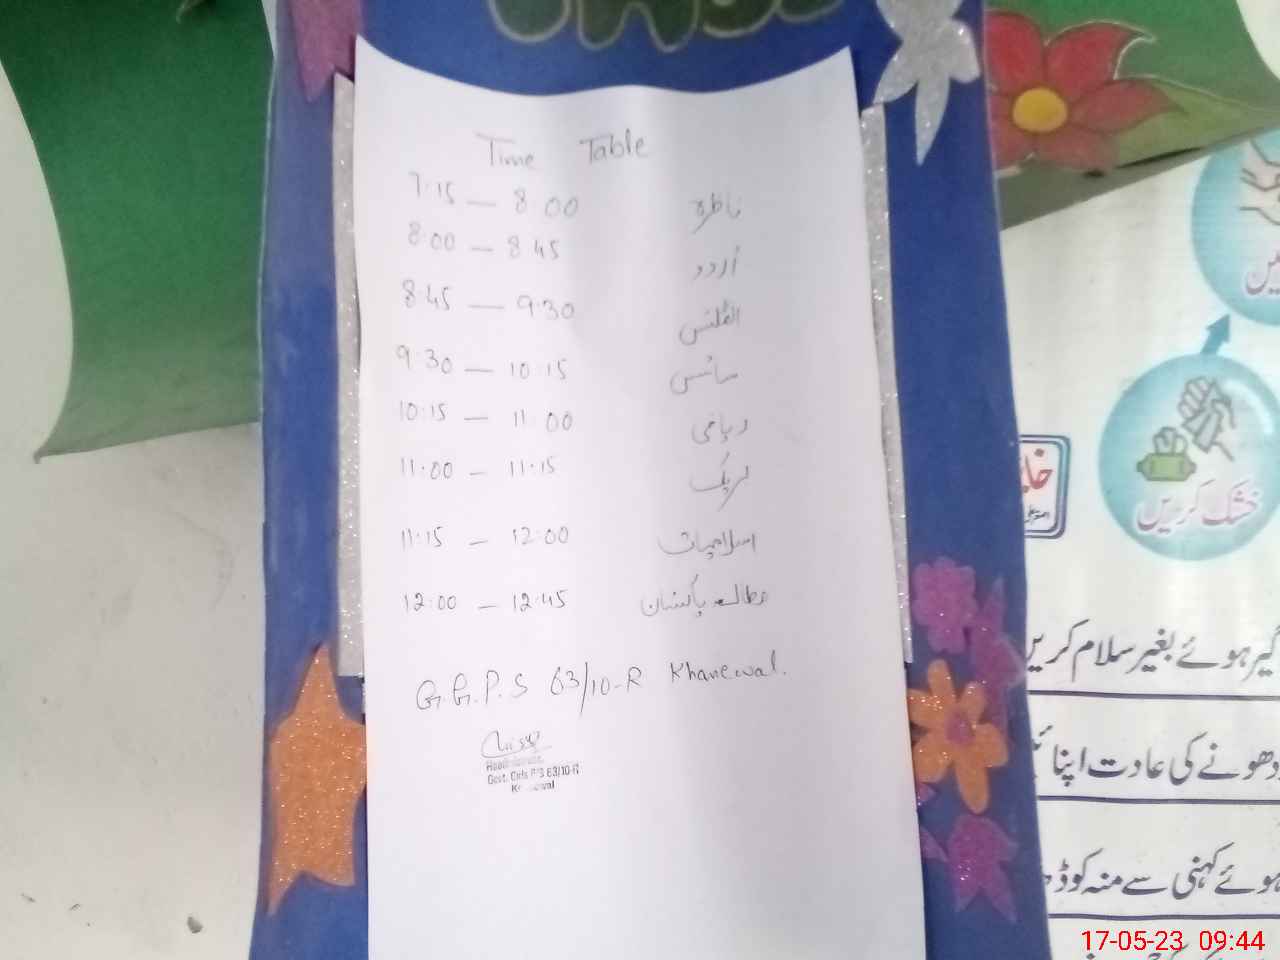 Time Table
7:15 — 8:00 ناظرہ
8:00 — 8:45 اُردو
8:45 — 9:30 انگلش
9:30 — 10:15 سائنس
10:15 — 11:00 ریاضی
11:00 — 11:15 بریک
11:15 — 12:00 اسلامیات
12:00 — 12:45 مطالعہ پاکستان
G.G.P.S 63/10-R Khanewal.
Headmistress
Govt. Girls P/S 63/10-R
Khanewal
خشک کریں
گیر ہوئے بغیر سلام کریں
دھونے کی عادت اپنا
ہوئے کہنی سے منہ کو
17-05-23 09:44